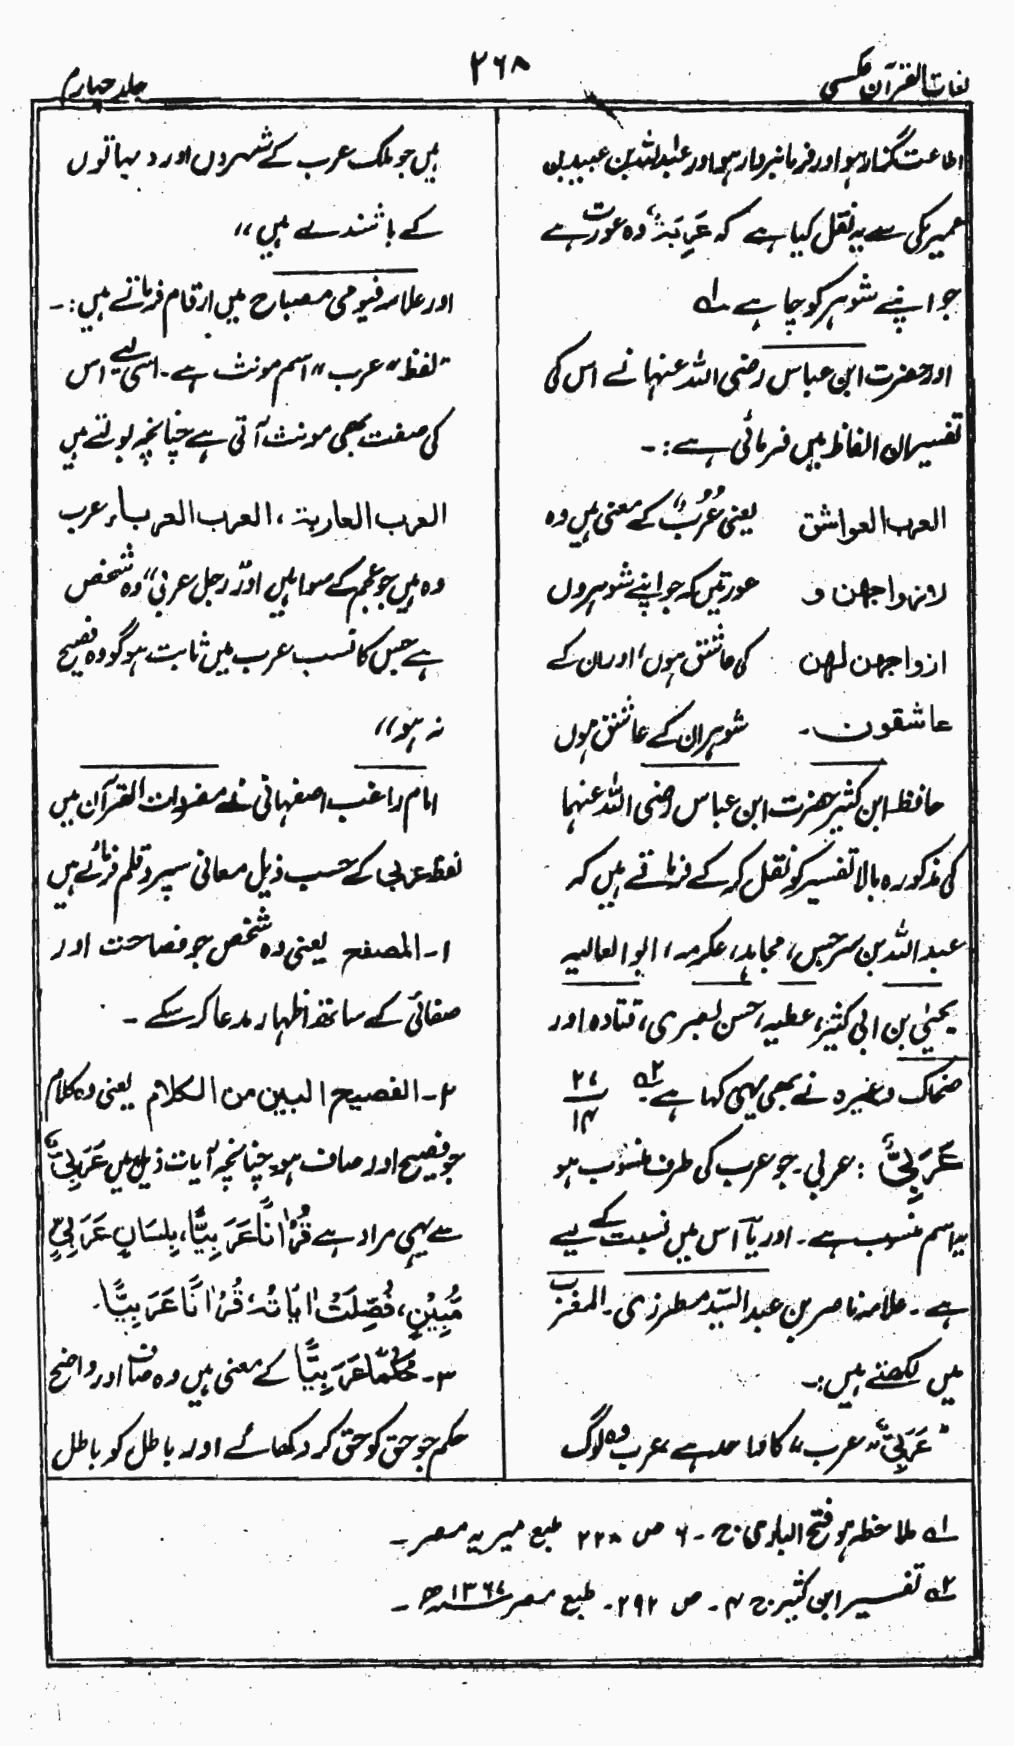 لغات القرآن عکسی
۲۶۸
جلد چہارم
اطاعت گذار ہو اور فرمانبردار ہو اور عبداللہ بن عبید بن
عمیر مکی سے یہ نقل کیا ہے کہ عَرِبَۃٌ وہ عورت ہے
جو اپنے شوہر کو چاہے ۱ھ
اور حضرت ابن عباس رضی اللہ عنہما نے اس کی
تفسیر ان الفاظ میں فرمائی ہے :-
العرب العواشق یعنی عُرُبٌ کے معنی ہیں وہ
لازواجهن و عورتیں کہ جو اپنے شوہروں
ازواجهن لهن کی عاشق ہوں، اور ان کے
عاشقون - شوہر ان کے عاشق ہوں
حافظ ابن کثیر حضرت ابن عباس رضی اللہ عنہما
کی مذکورہ بالا تفسیر کو نقل کر کے فرماتے ہیں کہ
عبداللہ بن سرجس، مجاہد، عکرمہ، ابو العالیہ
یحییٰ بن ابی کثیر، عطیہ، حسن بصری، قتادہ اور
ضحاک وغیرہ نے بھی یہی کہا ہے ۲ھ ۲۷/۱۴
عَرَبِیٌّ : عربی - جو عرب کی طرف منسوب ہو
یہ اسم منسوب ہے - اور یّ اس میں نسبت کے لیے
ہے - علامہ ناصر بن عبد السیّد مطرزی - المغرب
میں لکھتے ہیں :-
" عَرَبِیٌّ " عرب " کا واحد ہے ، عرب وہ لوگ
ہیں جو ملک عرب کے شہروں اور دیہاتوں
کے باشندے ہیں "
اور علامہ فیومی مصباح میں ارقام فرماتے ہیں :-
" لفظ " عرب " اسم مونث ہے - اسی لیے اس
کی صفت بھی مونث آتی ہے چنانچہ بولتے ہیں
العرب العاربة ، العرب العرباء عرب
وہ ہیں جو عجم کے سوا ہیں اور رجل عربی " وہ شخص
ہے جس کا نسب عرب میں ثابت ہو گو وہ فصیح
نہ ہو "
امام راغب اصفہانی نے مفردات القرآن میں
لفظ عربی کے حسب ذیل معانی سپرد قلم فرمائے ہیں
۱- المفصح یعنی وہ شخص جو فصاحت اور
صفائی کے ساتھ اظہار مدعا کر سکے -
۲- الفصيح البين من الكلام یعنی وہ کلام
جو فصیح اور صاف ہو چنانچہ آیات ذیل میں عَرَبِیٌّ
سے یہی مراد ہے قُرْاٰنًا عَرَبِيًّا، بِلِسَانٍ عَرَبِيٍّ
مُّبِيْنٍ، فُصِّلَتْ اٰيَاتُهٗ قُرْاٰنًا عَرَبِيًّا -
۳- حُكْمًا عَرَبِيًّا کے معنی ہیں وہ صاف اور واضح
حکم جو حق کو حق کر دکھائے اور باطل کو باطل
۱ھ ملاحظہ ہو فتح الباری ج - ۶ ص ۲۲۸ طبع میریہ مصر -
۲ھ تفسیر ابن کثیر ج ۴ - ص ۲۹۲ - طبع مصر ۱۳۶۷ھ -